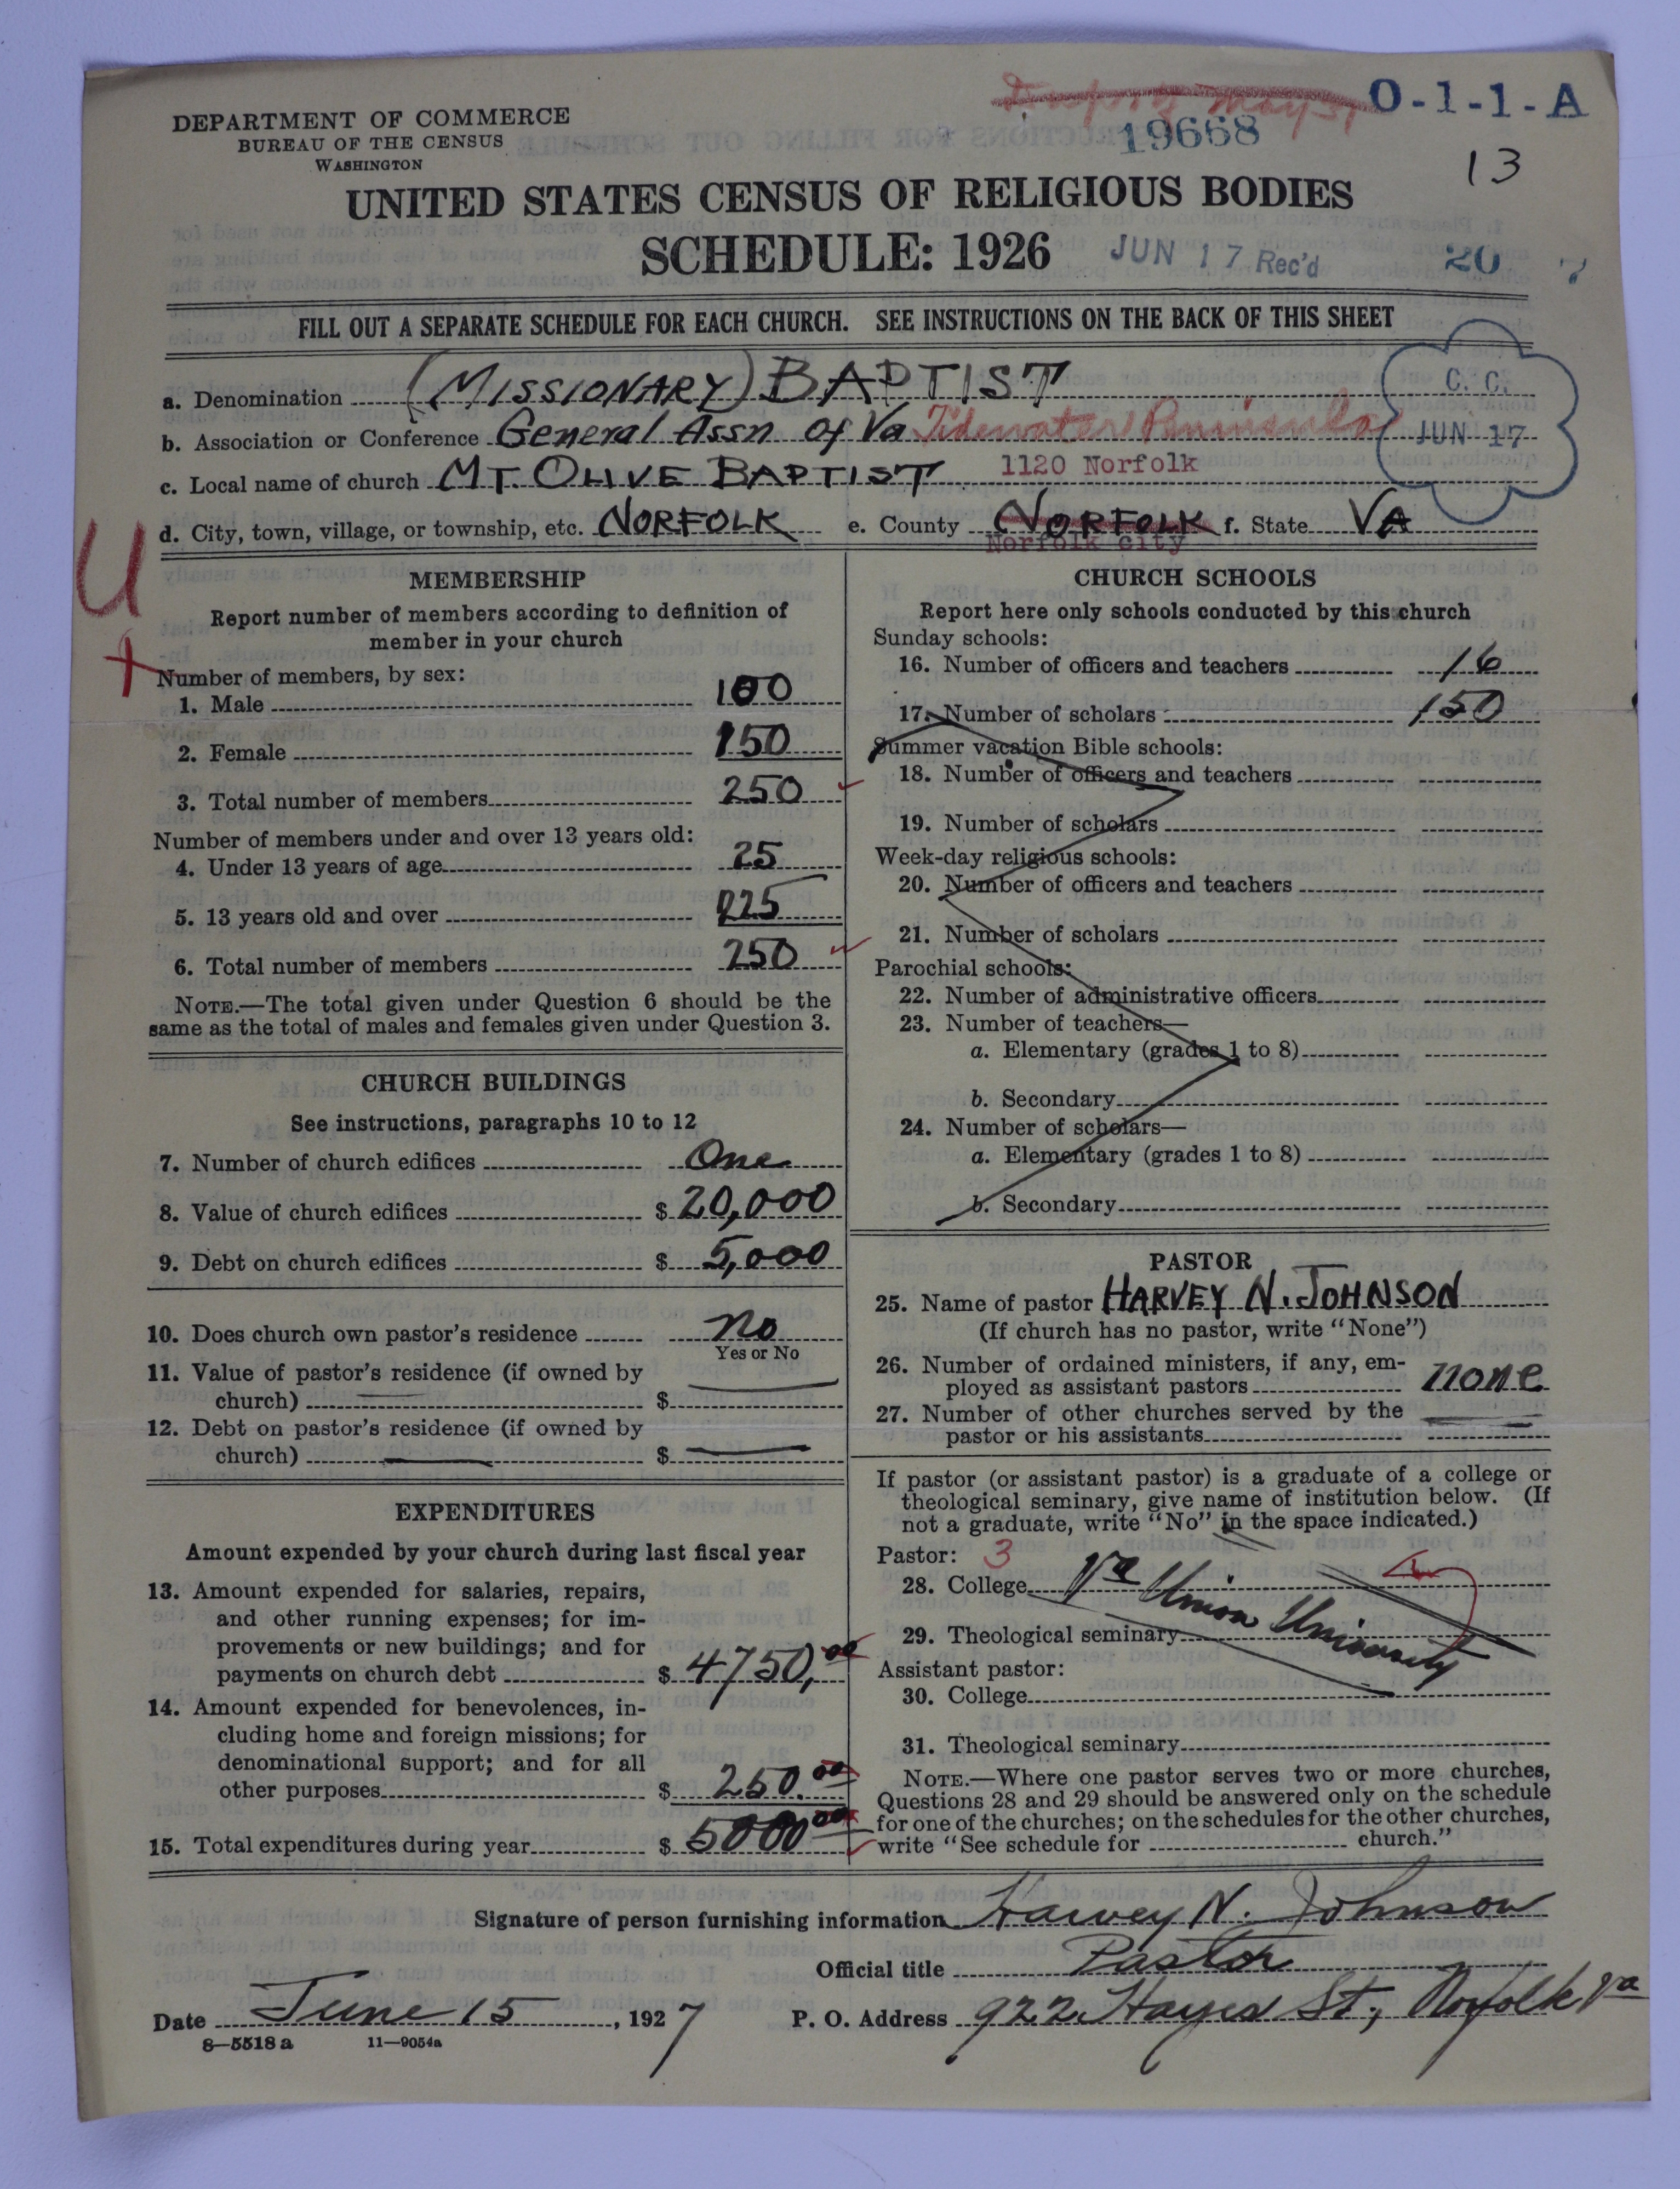 O-1-1-A
DEPARTMENT OF COMMERCE
BUREAU OF THE CENSUS
WASHINGTON
19668
13
UNITED STATES CENSUS OF RELIGIOUS BODIES
SCHEDULE: 1926
JUN 17 Rec'd
20
FILL OUT A SEPARATE SCHEDULE FOR EACH CHURCH. SEE INSTRUCTIONS ON THE BACK OF THIS SHEET
a. Denomination (MISSIONARY) BAPTIST
C. C.
b. Association or Conference General Assn of Va Tidewater Peninsula
JUN 17
c. Local name of church MT. OLIVE BAPTIST 1120 Norfolk
d. City, town, village, or township, etc. NORFOLK e. County NORFOLK f. State VA
Norfolk city
U
MEMBERSHIP
Report number of members according to definition of
member in your church
Number of members, by sex:
1. Male 100
2. Female 150
3. Total number of members 250
Number of members under and over 13 years old:
4. Under 13 years of age 25
5. 13 years old and over 225
6. Total number of members 250
NOTE.—The total given under Question 6 should be the
same as the total of males and females given under Question 3.
CHURCH BUILDINGS
See instructions, paragraphs 10 to 12
7. Number of church edifices One
8. Value of church edifices $ 20,000
9. Debt on church edifices $ 5,000
10. Does church own pastor's residence no
Yes or No
11. Value of pastor's residence (if owned by
church) $
12. Debt on pastor's residence (if owned by
church) $
EXPENDITURES
Amount expended by your church during last fiscal year
13. Amount expended for salaries, repairs,
and other running expenses; for im-
provements or new buildings; and for
payments on church debt $ 4750,00
14. Amount expended for benevolences, in-
cluding home and foreign missions; for
denominational support; and for all
other purposes $ 250.00
15. Total expenditures during year $ 5000 00
CHURCH SCHOOLS
Report here only schools conducted by this church
Sunday schools:
16. Number of officers and teachers 16
17. Number of scholars 150
Summer vacation Bible schools:
18. Number of officers and teachers
19. Number of scholars
Week-day religious schools:
20. Number of officers and teachers
21. Number of scholars
Parochial schools:
22. Number of administrative officers
23. Number of teachers—
a. Elementary (grades 1 to 8)
b. Secondary
24. Number of scholars—
a. Elementary (grades 1 to 8)
b. Secondary
PASTOR
25. Name of pastor HARVEY N. JOHNSON
(If church has no pastor, write "None")
26. Number of ordained ministers, if any, em-
ployed as assistant pastors none
27. Number of other churches served by the
pastor or his assistants
If pastor (or assistant pastor) is a graduate of a college or
theological seminary, give name of institution below. (If
not a graduate, write "No" in the space indicated.)
Pastor: 3
28. College Va Union University
29. Theological seminary
Assistant pastor:
30. College
31. Theological seminary
NOTE.—Where one pastor serves two or more churches,
Questions 28 and 29 should be answered only on the schedule
for one of the churches; on the schedules for the other churches,
write "See schedule for church."
Signature of person furnishing information Harvey N. Johnson
Official title Pastor
Date June 15, 1927 P. O. Address 922 Hayes St, Norfolk, Va
8—5518 a 11—9054a